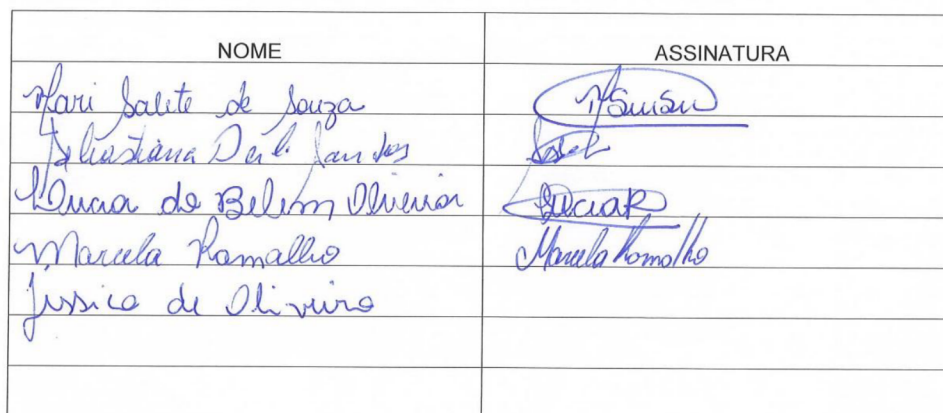 NOME ASSINATURA
Mari Salete de Souza
Sebastiana dos Santos
Lucia de Belem Oliveira Luciar
Marcela Ramalho Marcela Ramalho
Jessica de Oliveira